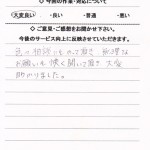 ◇今回の作業・対応について
大変良い ・良い ・普通 ・悪い
◇ご意見・ご感想をお聞かせ下さい。
今後のサービス向上に反映させていただきます。
色々相談にものって頂き、無理な
お願いも快く聞いて頂き大変
助かりました。